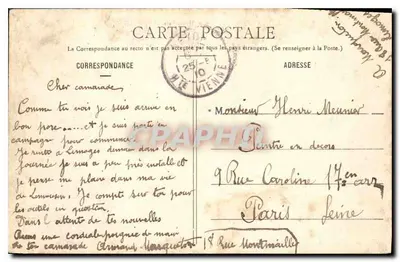 CARTE POSTALE
La Correspondance au recto n'est pas acceptée par tous les pays étrangers. (Se renseigner à la Poste).
CORRESPONDANCE
ADRESSE
25
10
HTE VIENNE
Cher camarade,
Comme tu vois je suis arrivé en
bon port.....et je suis parti en
campagne pour commencer
Je rentre à Limoges demain dans la
Journée je suis à peu près installé et
je pense me plaire dans ma vie
de Limousin. Je compte sur toi pour
les outils en question.
Dans l'attente de tes nouvelles
Reçois une cordiale poignée de main
de ton camarade Armand
Monsieur Henri Meunier
Peintre en décors
9 Rue Caroline 17e arr
Paris Seine
18 Rue Montmailler
Limoges
PHENIX CARTES